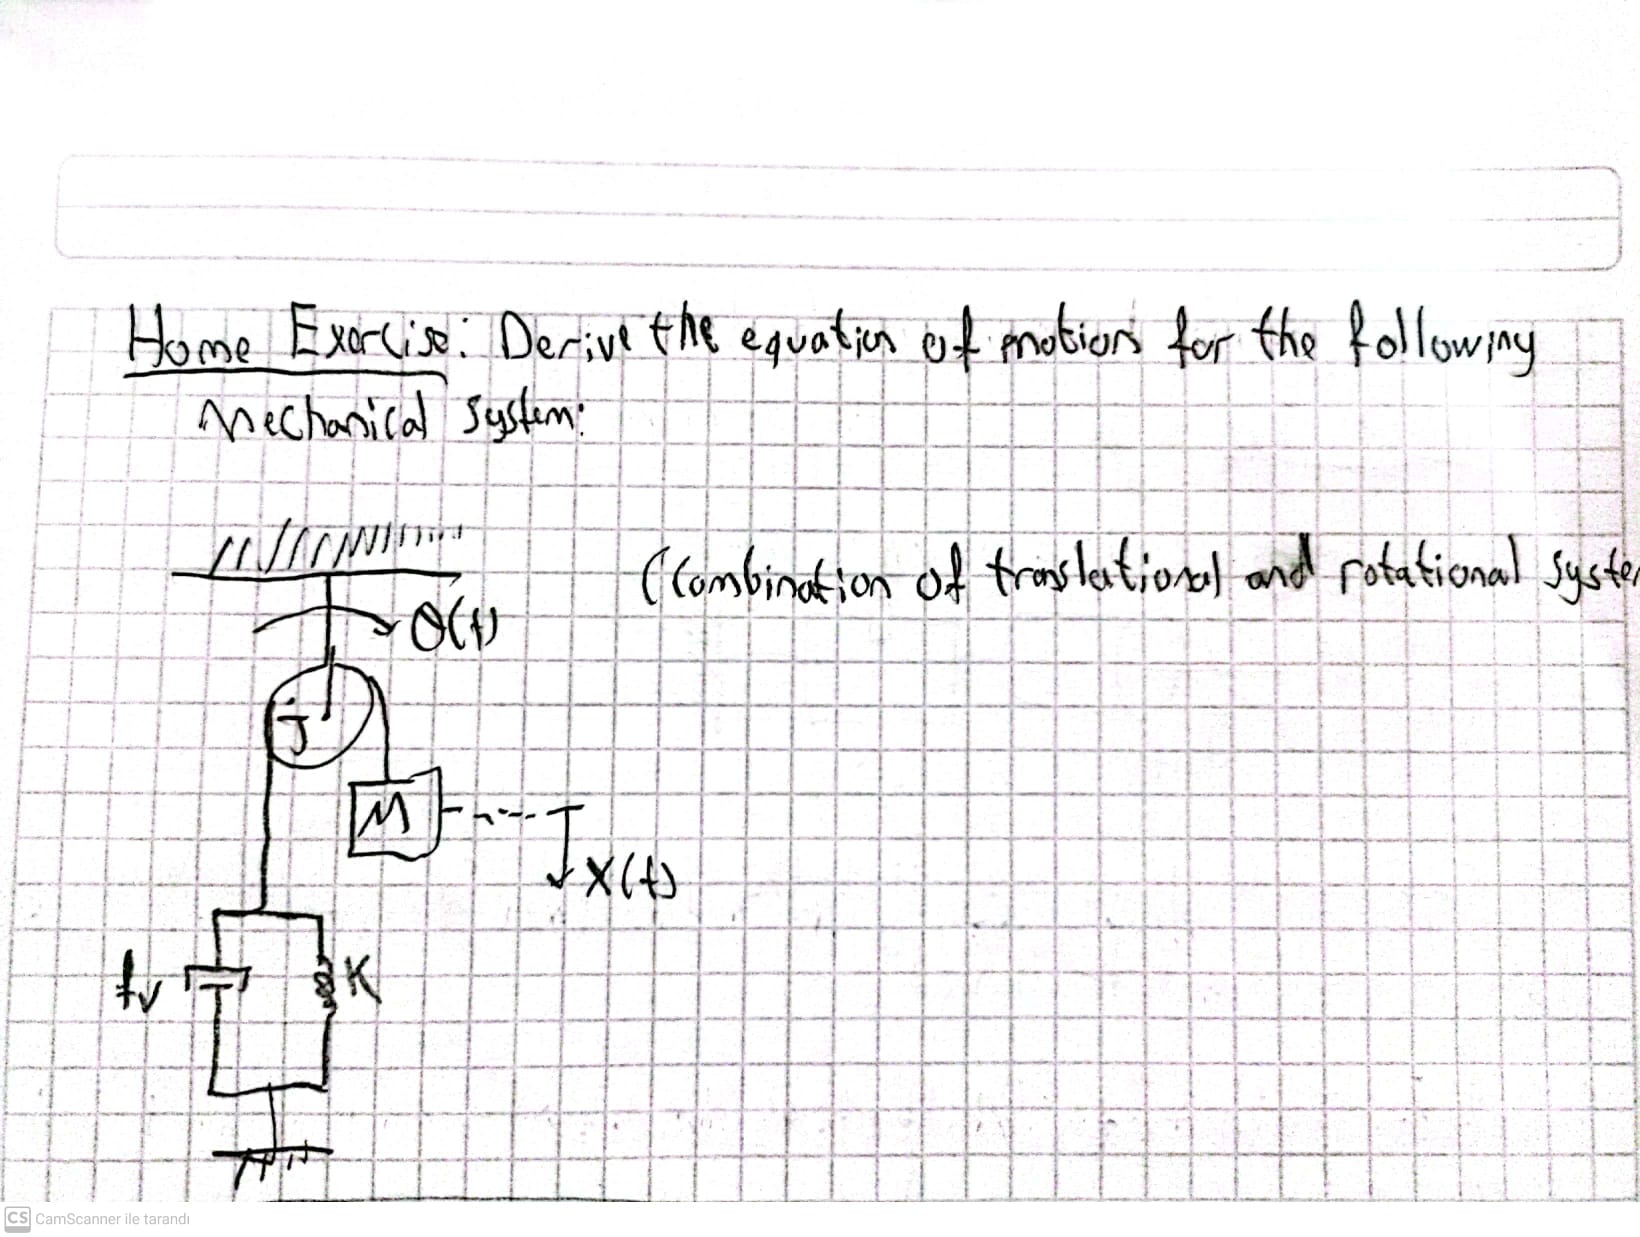 Home Exercise: Derive the equation of motion for the following
Mechanical System:
(Combination of translational and rotational system
θ(t)
J
M
x(t)
fv
K
CS CamScanner ile tarandı